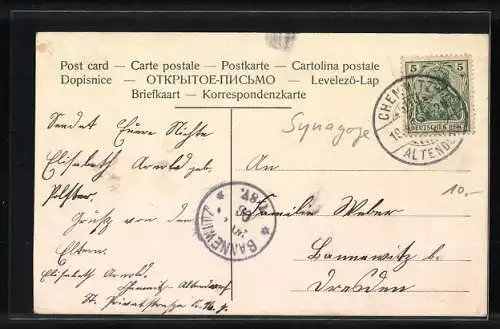 Post card — Carte postale — Postkarte — Cartolina postale
Dopisnice — ОТКРЫТОЕ-ПИСЬМО — Levelező-Lap
Briefkaart — Korrespondenzkarte
5 5
DEUTSCHES REICH
CHEMNITZ
ALTENDORF
Synagoge
10.-
Sendet Eurer Nichte
Elisabeth Arnold geb.
Gruß von den
Eltern.
Elisabeth Arnold.
Chemnitz-Altendorf
BANNEWITZ
An
Familie Weber
Bannewitz b.
Dresden